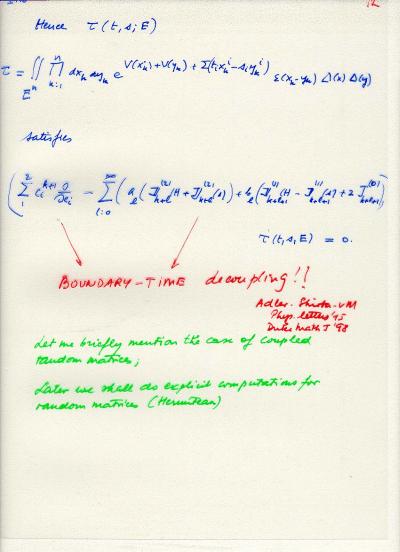 12
Hence τ(t,s;E)
τ = ∬_{E^n} ∏_{k=1}^{n} dx_k dy_k e^{V(x_k)+V(y_k)+Σ(t_i x_k^i − s_i y_k^i)} ε(x_k−y_k) Δ(x) Δ(y)
satisfies
τ(t,s,E) = 0.
BOUNDARY-TIME decoupling!!
Adler-Shiota-vM
Phys. letters '95
Duke Math J '98
Let me briefly mention the case of coupled
random matrices;
Later we shall do explicit computations for
random matrices (Hermitean)